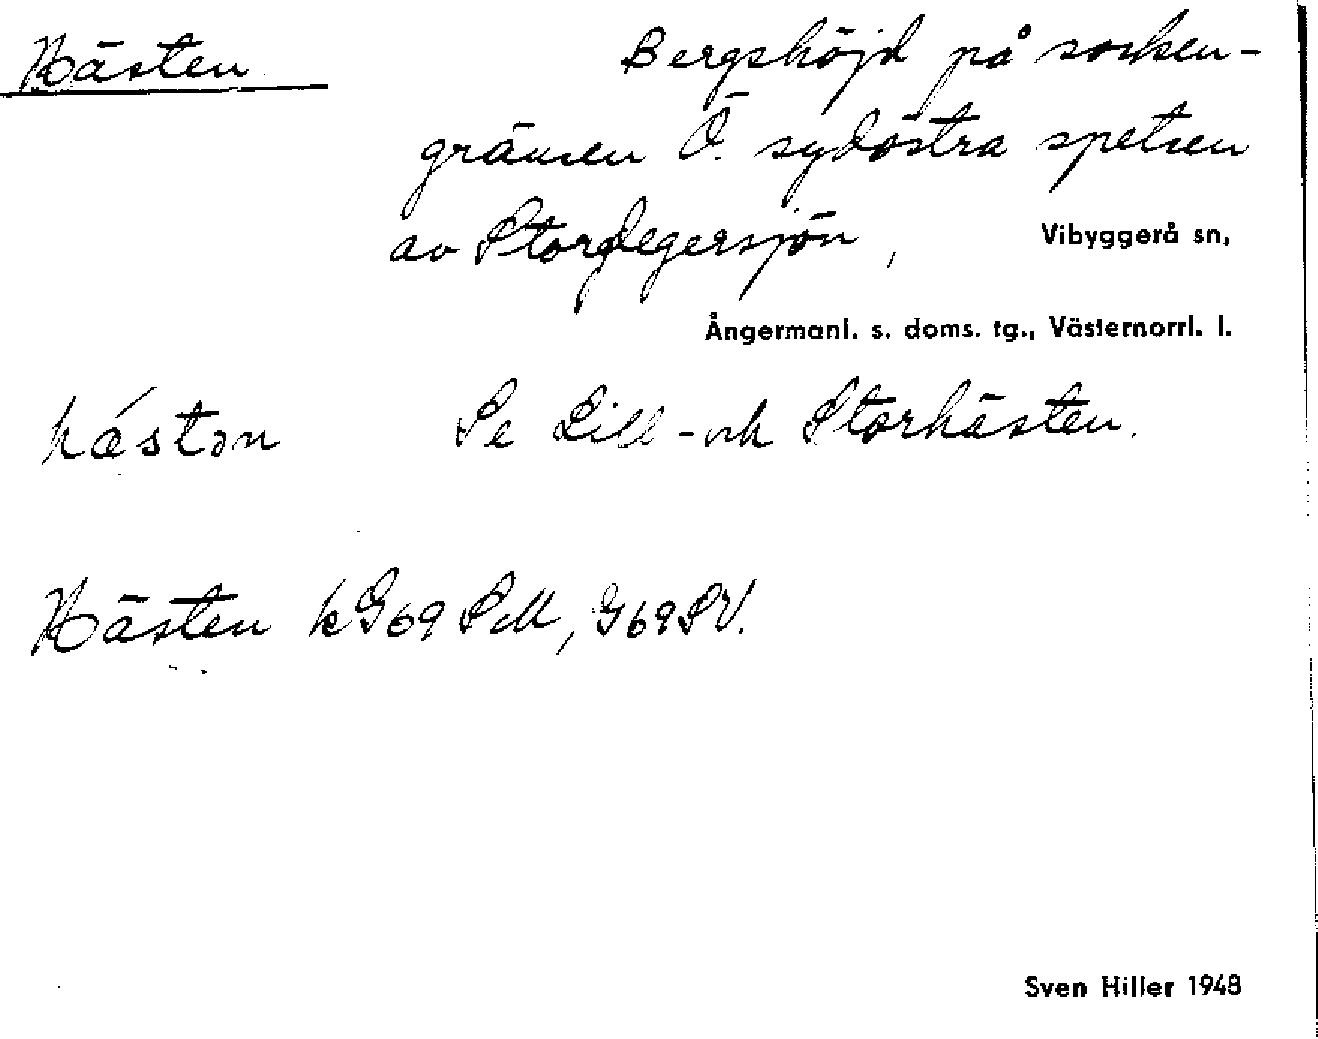 Hästen
Bergshöjd på socken-
gränsen Ö. sydöstra spetsen
av Stordegersjön, Vibyggerå sn,
Ångermanl. s. doms. tg., Västernorrl. l.
hǽstən Se Lill- och Storhästen.
Hästen k G69 SM, G69SV.
Sven Hiller 1948